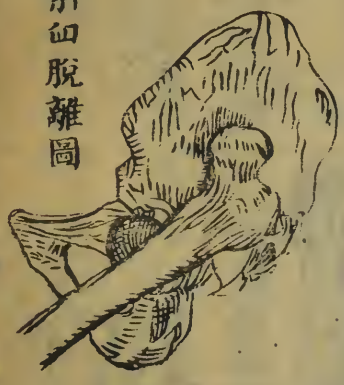 臼脫離圖